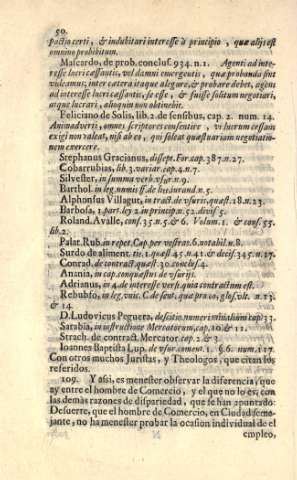 50.
pactio certi, & indubitari interesse à principio, quæ alijs est
omnino prohibitum.
Mascardo, de prob. conclus. 934. n. 1. Agens ad inte-
resse lucri cessantis, vel damni emergentis, quæ probanda sint
vidéamus; inter catera itaque alegare, & probare debet, agens
ad interesse lucri cessantis, se esse, & fuisse solitum negotiari,
atque lucrari, alioquin non obtinebit.
Feliciano de Solis, lib. 2. de sensibus, cap. 2. num. 14.
Animadverti, omnes scriptores consentire, vt lucrum cessans
exigi non valeat, nisi ab eo, qui soleat quæstuariam negotiatio-
nem exercere.
Stephanus Gracianus, discep. For. cap. 387. n. 27.
Cobarrubias, lib. 3. variar. cap. 4. n. 7.
Silvester, in summa verb. vsur. n. 9.
Barthol. in leg. numis ff. de lit. in iurand. n. 5.
Alphonsus Villagut, in tract. de vsuris, quæst. 18. n. 23.
Barbosa, 1. part. ley 2. in princip. n. 52. divis. 5.
Roland. Avalle, cons. 35. n. 5. & 6. Volum. 1. & cons. 55.
lib. 2.
Palat. Rub. in repet. Cap. per vestras. 6. notabil. n. 8.
Surdo de aliment. tit. 1. quæst. 45. n. 41. & decis. 345. n. 17.
Conrad. de contract. quæst. 30. conclus. 4.
Anania, in cap. conquæstus de vsuris.
Adrianus, in 4. de interesse vers. quia contractum est.
Rebuffo, in leg. vnic. C. de sent. quæ pro eo, glos. vlt. n. 13.
& 14.
D. Ludovicus Peguera, decis. 110. numeri initialium cap. 33.
Sarabia, in instructione Mercatorum, cap. 10. & 11.
Strach. de contract. Mercator. cap. 2. & 3.
Ioannes Baptista Lup. de vsur. coment. 1. §. 6. num. 117.
Con otros muchos Juristas, y Theologos, que citan los
referidos.
109. Y assi, es menester observar la diferencia, que
ay entre el hombre de Comercio, y el que no lo es, con
las demàs razones de disparidad, que se han apuntado:
Desuerte, que el hombre de Comercio, en Ciudad seme-
jante, no ha menester probar la ocasion individual de el
empleo,